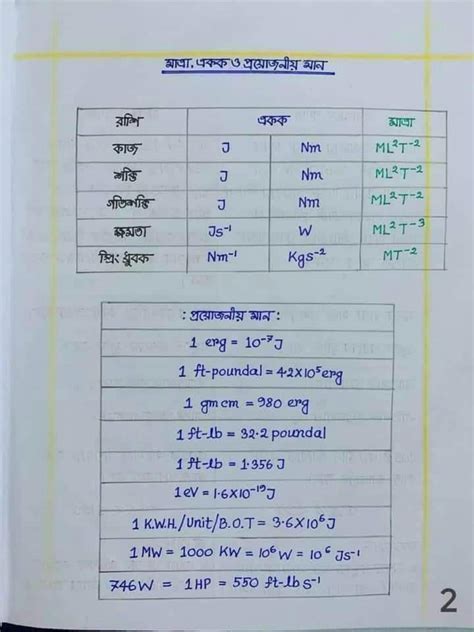 মাত্রা, একক ও প্রয়োজনীয় মান
রাশি একক মাত্রা
কাজ J Nm ML²T⁻²
শক্তি J Nm ML²T⁻²
গতিশক্তি J Nm ML²T⁻²
ক্ষমতা Js⁻¹ W ML²T⁻³
স্প্রিং ধ্রুবক Nm⁻¹ Kgs⁻² MT⁻²
: প্রয়োজনীয় মান :
1 erg = 10⁻⁷J
1 ft-poundal = 4.2X10⁵erg
1 gmcm = 980 erg
1 ft-lb = 32.2 poundal
1 ft-lb = 1.356 J
1 eV = 1.6X10⁻¹⁹J
1 K.W.H./Unit/B.O.T = 3.6X10⁶J
1 MW = 1000 KW = 10⁶W = 10⁶ Js⁻¹
746W = 1HP = 550 ft-lb s⁻¹
2